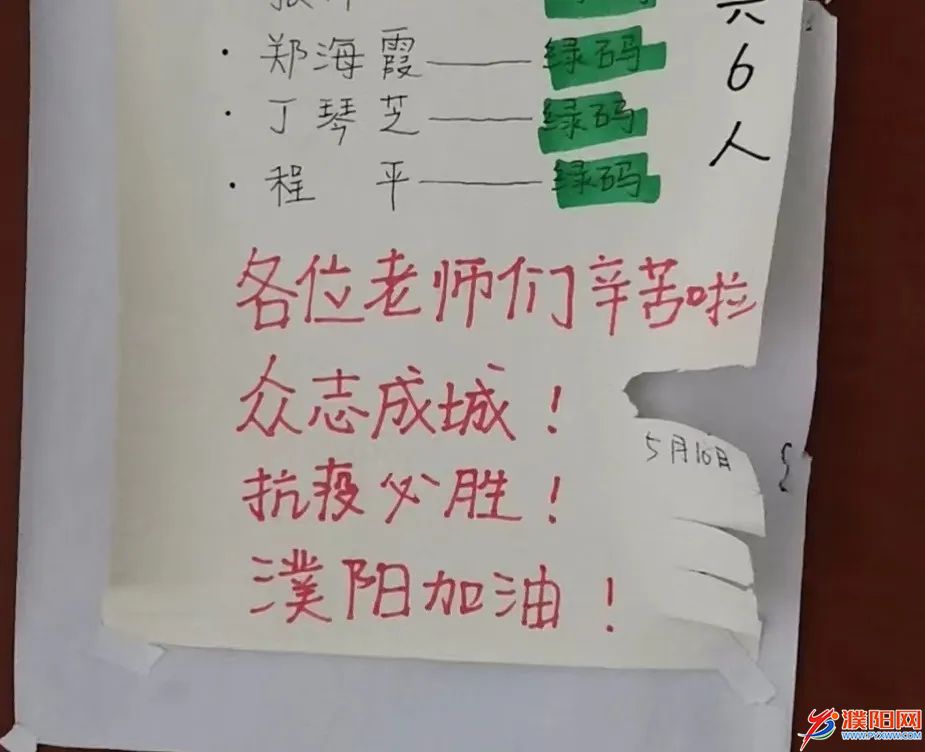 绿码
· 郑海霞——绿码
· 丁琴芝——绿码
· 程 平——绿码
共6人
各位老师们辛苦啦
众志成城！
抗疫必胜！
濮阳加油！
5月16日
濮阳网
WWW.PYXWW.COM